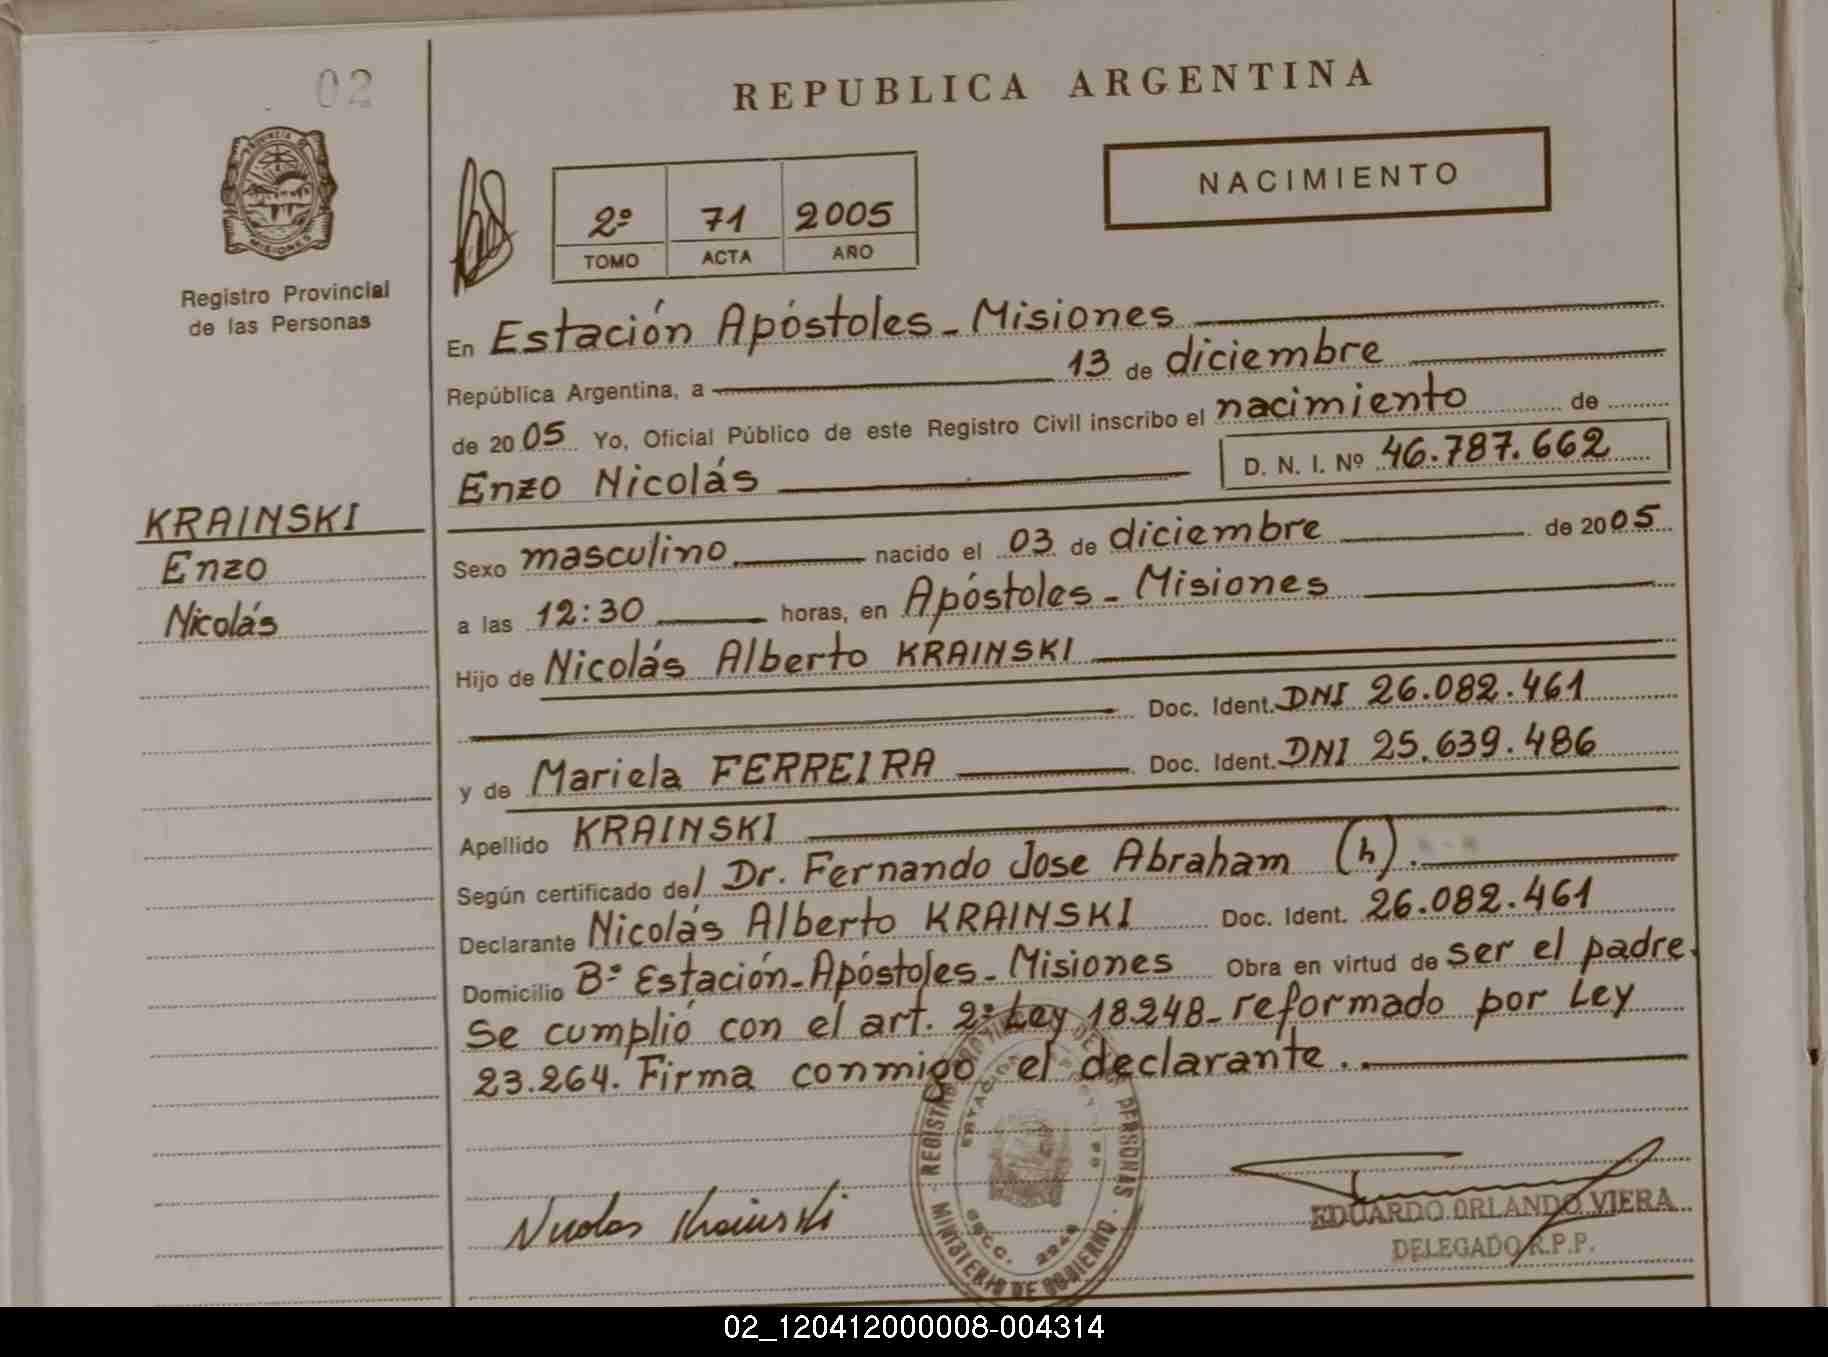 02
PROVINCIA DE
MISIONES
Registro Provincial
de las Personas
KRAINSKI
Enzo
Nicolás
REPUBLICA ARGENTINA
NACIMIENTO
2º 71 2005
TOMO ACTA AÑO
En Estación Apóstoles - Misiones
República Argentina, a 13 de diciembre
de 2005 Yo, Oficial Público de este Registro Civil inscribo el nacimiento de
Enzo Nicolás D. N. I. Nº 46.787.662
Sexo masculino nacido el 03 de diciembre de 2005
a las 12:30 horas, en Apóstoles - Misiones
Hijo de Nicolás Alberto KRAINSKI
Doc. Ident. DNI 26.082.461
y de Mariela FERREIRA Doc. Ident. DNI 25.639.486
Apellido KRAINSKI
Según certificado del Dr. Fernando Jose Abraham (h).
Declarante Nicolás Alberto KRAINSKI Doc. Ident. 26.082.461
Domicilio Bº Estación - Apóstoles - Misiones Obra en virtud de ser el padre.
Se cumplió con el art. 2º Ley 18.248 - reformado por Ley
23.264. Firma conmigo el declarante.
Nicolas Krainski
REGISTRO DE PERSONAS
MINISTERIO DE GOBIERNO
EDUARDO ORLANDO VIERA
DELEGADO R.P.P.
02_120412000008-004314